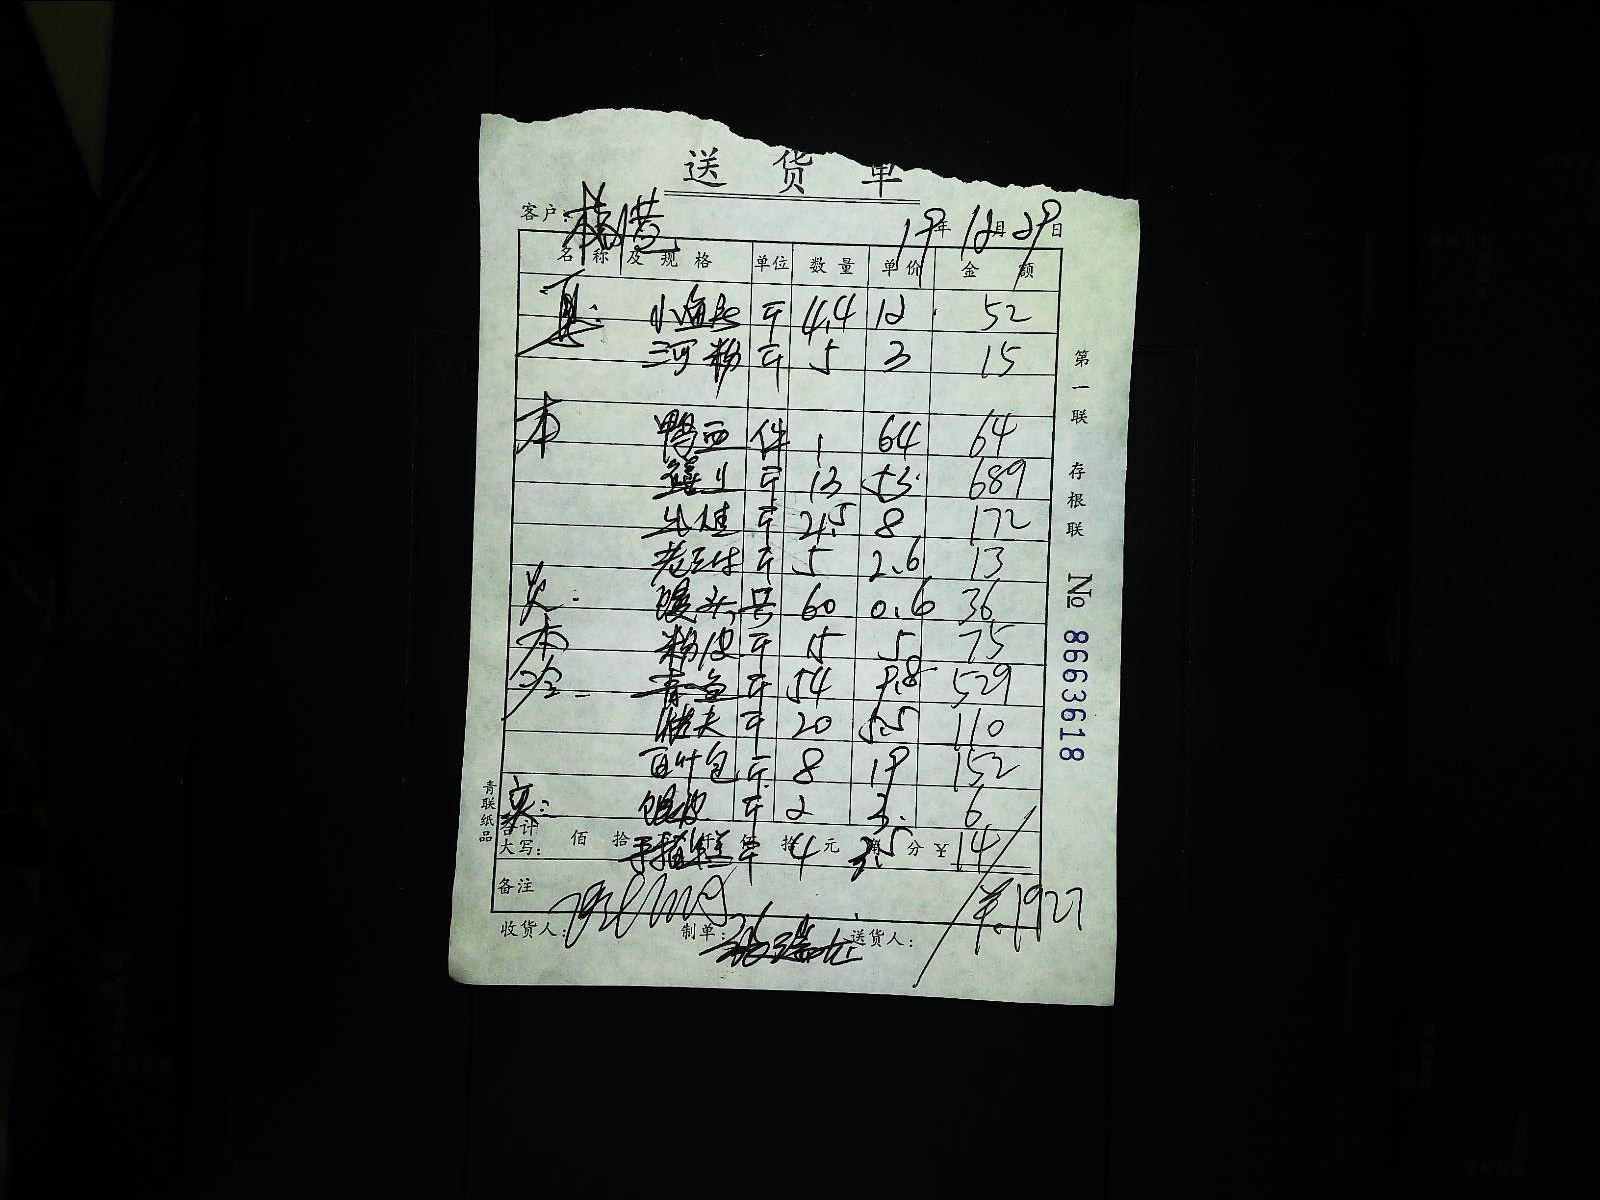 送货单
客户：
19年12月29日
名称及规格 单位 数量 单价 金额
斤 4.4 12 52
河粉 斤 5 3 15
本 鸭血 件 1 64 64
斤 13 53 689
牛蛙 斤 21.5 8 172
斤 5 2.6 13
馒头 只 60 0.6 36
本 粉皮 斤 15 5 75
冷 青鱼 斤 54 9.8 529
烤夫 斤 20 5.5 110
百叶包 斤 8 19 152
馄皮 斤 2 3. 6
合计
大写： 佰 拾 仟 佰 拾 元 角 分 ¥
年糕 斤 4 3.5 14
备注
¥1927
收货人： 制单： 送货人：
第一联 存根联
№ 8663618
青联纸品